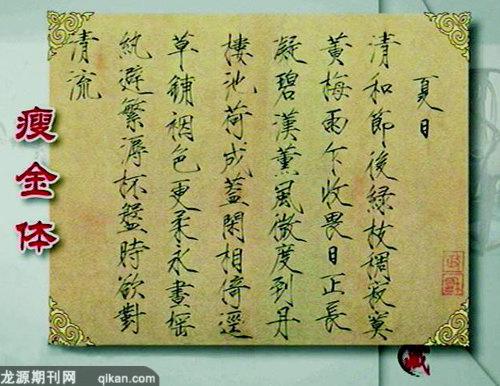 夏日
清和節後綠枝稠寂寞
黃梅雨乍收畏日正長
凝碧漢薰風微度到丹
樓池荷成蓋閑相倚逕
草鋪裀色更柔永晝搖
紈避繁溽杯盤時欲對
清流
瘦金体
龙源期刊网 qikan.com